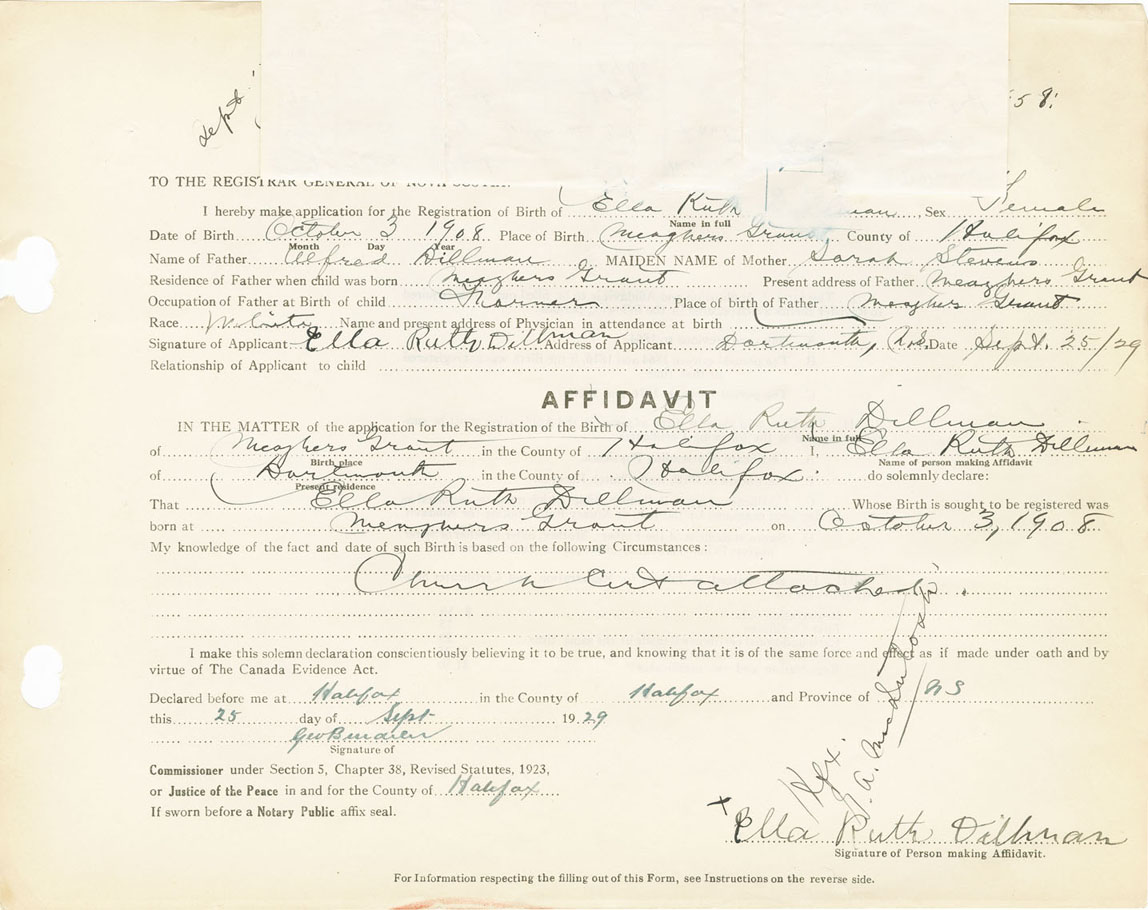 Sept.
58.
TO THE REGISTRAR GENERAL OF NOVA SCOTIA:
I hereby make application for the Registration of Birth of Ella Ruth Sex Female
Name in full
Date of Birth October 3 1908 Place of Birth Meaghers Grant, County of Halifax
Month Day Year
Name of Father Alfred Dillman MAIDEN NAME of Mother Sarah Stevens
Residence of Father when child was born Meaghers Grant Present address of Father Meaghers Grant
Occupation of Father at Birth of child Farmer Place of birth of Father Meaghers Grant
Race White Name and present address of Physician in attendance at birth
Signature of Applicant Ella Ruth Dillman Address of Applicant Dartmouth, N.S. Date Sept. 25/29
Relationship of Applicant to child
AFFIDAVIT
IN THE MATTER of the application for the Registration of the Birth of Ella Ruth Dillman
Name in full
of Meaghers Grant in the County of Halifax I, Ella Ruth Dillman
Birth place Name of person making Affidavit
of Dartmouth in the County of Halifax do solemnly declare:
Present residence
That Ella Ruth Dillman Whose Birth is sought to be registered was
born at Meaghers Grant on October 3, 1908
My knowledge of the fact and date of such Birth is based on the following Circumstances:
Church Cert attached.
I make this solemn declaration conscientiously believing it to be true, and knowing that it is of the same force and effect as if made under oath and by
virtue of The Canada Evidence Act.
Declared before me at Halifax in the County of Halifax and Province of NS
this 25 day of Sept 1929
Signature of
Commissioner under Section 5, Chapter 38, Revised Statutes, 1923,
or Justice of the Peace in and for the County of Halifax
If sworn before a Notary Public affix seal.
Hfx.
x Ella Ruth Dillman
Signature of Person making Affiidavit.
For Information respecting the filling out of this Form, see Instructions on the reverse side.